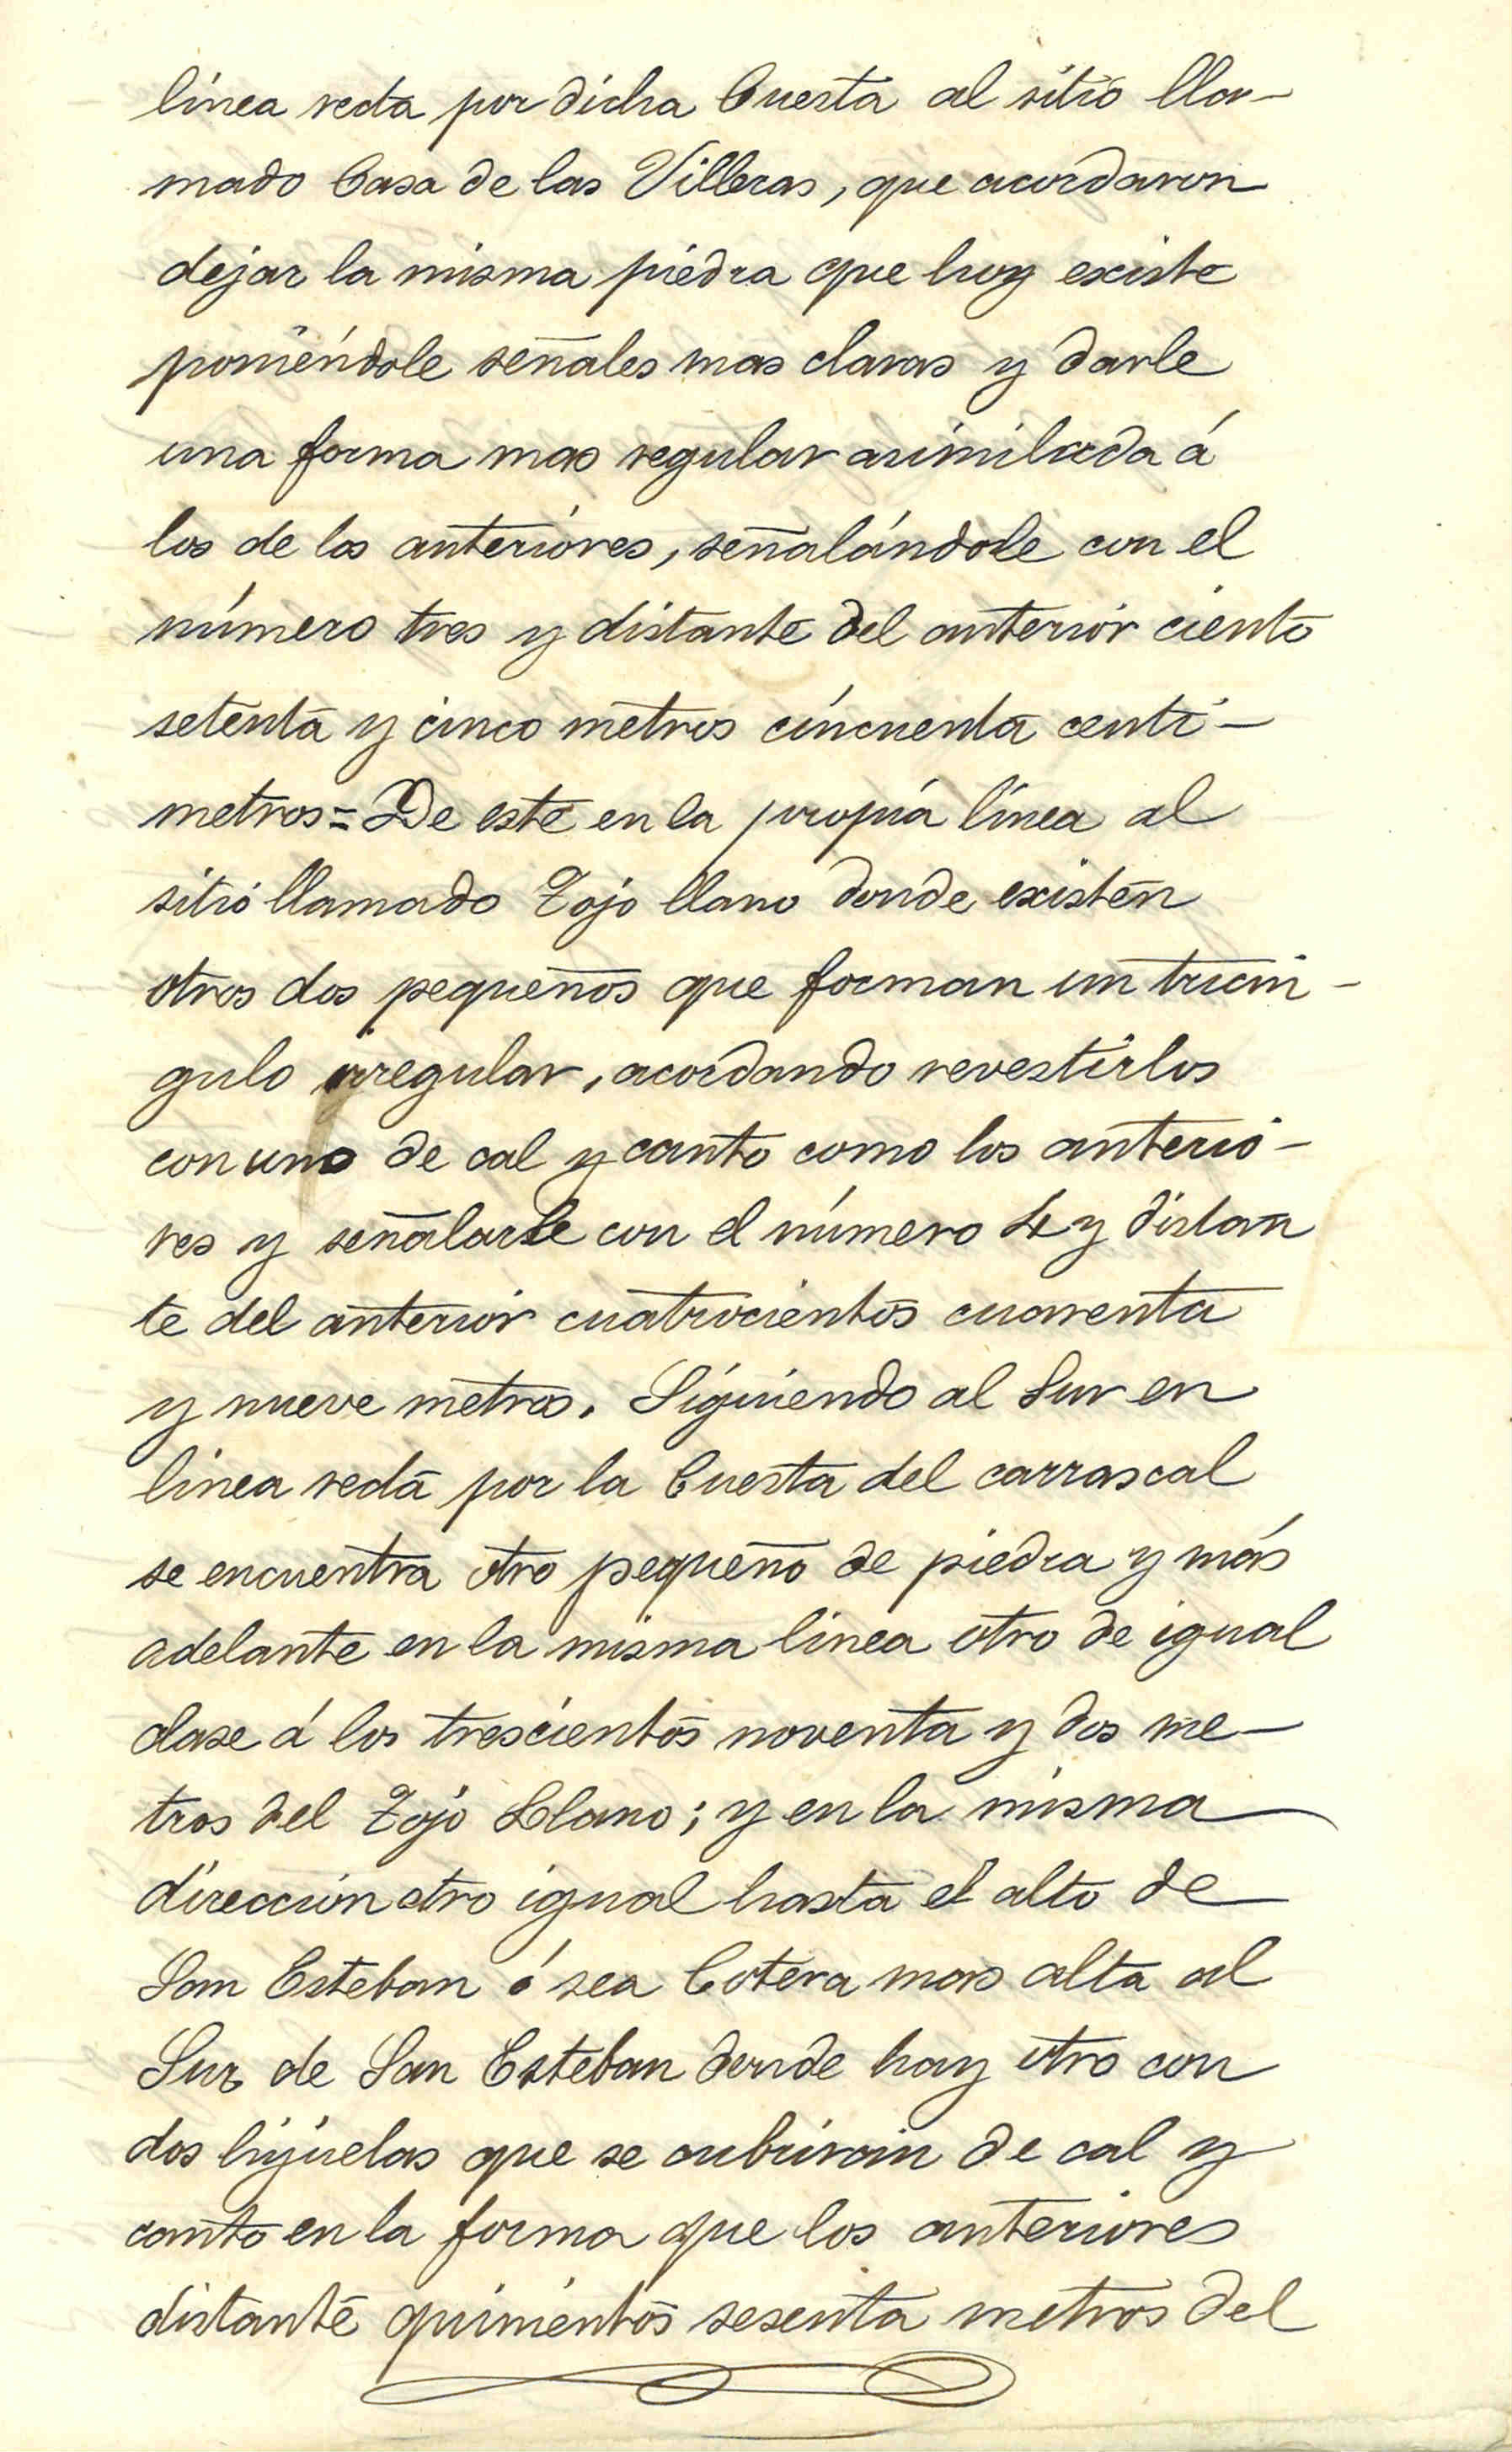 línea recta por dicha Cuesta al sitio lla-
mado Casa de las Villeras, que acordaron
dejar la misma piedra que hoy existe
poniéndole señales mas claras y darle
una forma mas regular asimilada á
los de los anteriores, señalándole con el
número tres y distante del anterior ciento
setenta y cinco metros cincuenta centi-
metros = De este en la propia línea al
sitio llamado Tojo llano donde existen
otros dos pequeños que forman un trian-
gulo irregular, acordando revestirlos
con uno de cal y canto como los anterio-
res y señalarle con el número 4 y distan
te del anterior cuatrocientos cuarenta
y nueve metros. Siguiendo al Sur en
linea recta por la Cuesta del carrascal
se encuentra otro pequeño de piedra y más
adelante en la misma linea otro de igual
clase á los trescientos noventa y dos me-
tros del Tojo Llano; y en la misma
dirección otro igual hasta el alto de
San Esteban ó sea Cotera mas alta al
Sur de San Esteban donde hay otro con
dos hijuelas que se cubriran de cal y
canto en la forma que los anteriores
distante quinientos sesenta metros del